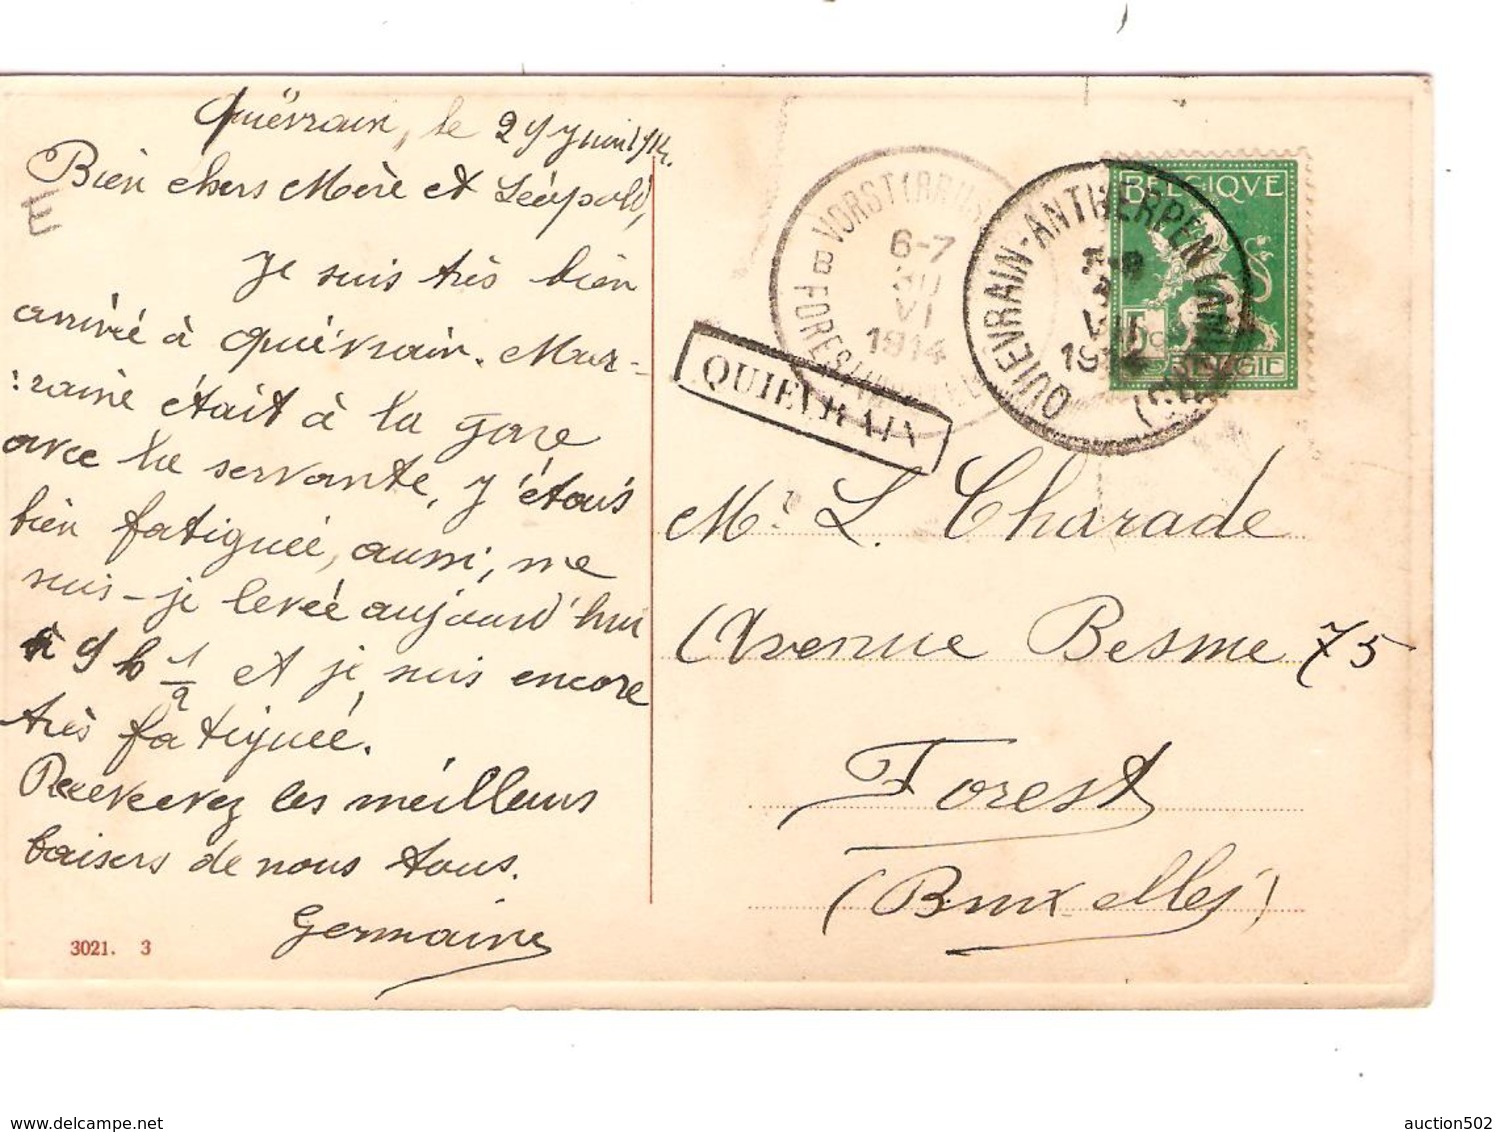 Quiévrain, le 29 juin 1914.
Bien chers Mère et Léopold,
Je suis très bien
arrivée à Quiévrain. Mar-
raine était à la gare
avec la servante, j'étais
bien fatiguée, aussi, me
suis-je levée aujourd'hui
à 9 h 1/2 et je suis encore
très fatiguée.
Recevez les meilleurs
baisers de nous tous.
Germaine
3021. 3
E
VORST (BRUS
6-7
30
VI
1914
B FOREST
QUIEVRAIN-ANTWERPEN
1914
BELGIQUE
5c
BELGIE
QUIEVRAIN
Mr. L. Charade
Avenue Besme 75
Forest
(Bruxelles)
auction502